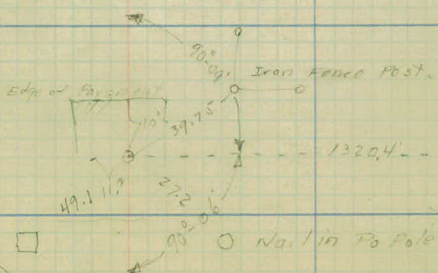 90°-09'
Iron Fence Post.
Edge of Pavement
10'
39.75
1320.4'
49.1 11.2
27.2
90°-06'
Nail in Po Pole